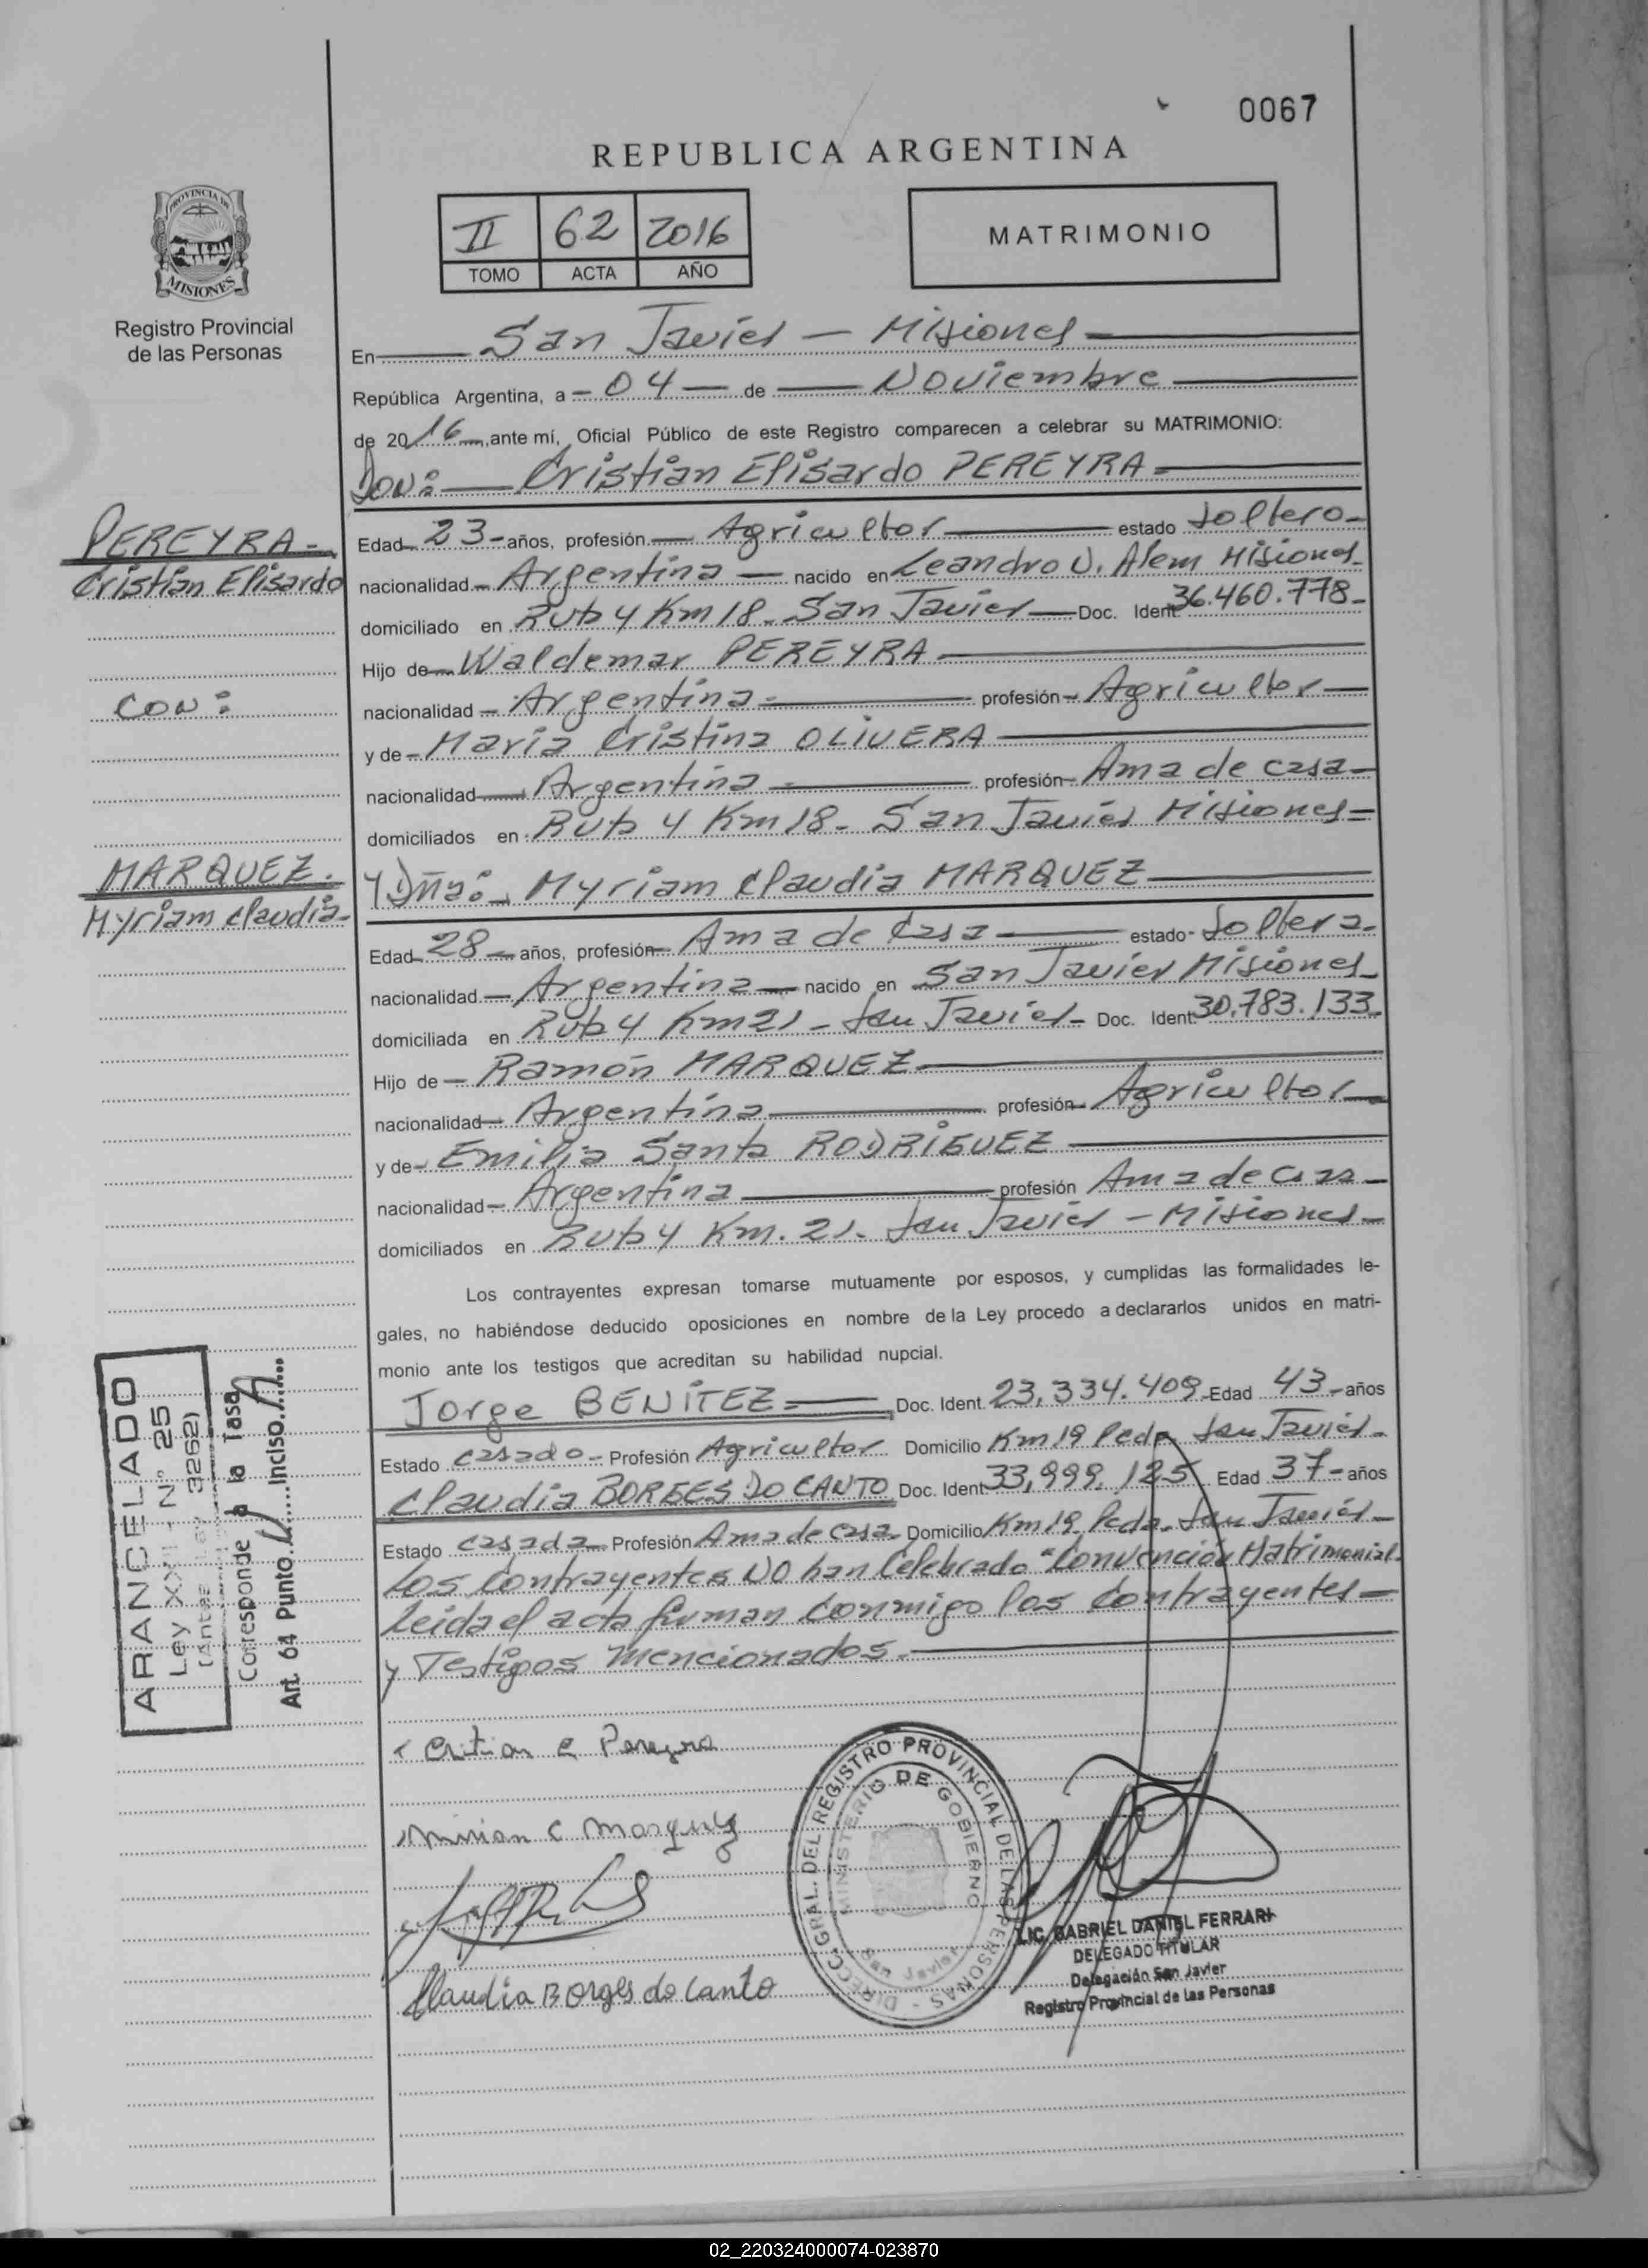 0067
REPUBLICA ARGENTINA
II 62 2016
TOMO ACTA AÑO
MATRIMONIO
PROVINCIA DE
MISIONES
Registro Provincial
de las Personas
En San Javier - Misiones
República Argentina, a - 04 - de Noviembre
de 2016, ante mí, Oficial Público de este Registro comparecen a celebrar su MATRIMONIO:
Don: Cristian Elisardo PEREYRA
PEREYRA-
Cristian Elisardo
con:
MARQUEZ.
Myriam Claudia-
Edad 23- años, profesión Agricultor estado Soltero-
nacionalidad Argentina nacido en Leandro N. Alem Misiones-
domiciliado en Ruta 4 Km 18. San Javier Doc. Ident. 36.460.778-
Hijo de Waldemar PEREYRA
nacionalidad Argentina profesión Agricultor
y de Maria Cristina OLIVERA
nacionalidad Argentina profesión Ama de casa
domiciliados en Ruta 4 Km 18- San Javier Misiones
Y Dña: Myriam Claudia MARQUEZ
Edad 28 años, profesión Ama de Casa estado Soltera.
nacionalidad Argentina nacido en San Javier Misiones
domiciliada en Ruta 4 Km 21 - San Javier - Doc. Ident. 30.783.133
Hijo de Ramón MARQUEZ
nacionalidad Argentina profesión Agricultor
y de Emilia Santa RODRIGUEZ
nacionalidad Argentina profesión Ama de casa
domiciliados en Ruta 4 Km. 21. San Javier - Misiones-
Los contrayentes expresan tomarse mutuamente por esposos, y cumplidas las formalidades le-
gales, no habiéndose deducido oposiciones en nombre de la Ley procedo a declararlos unidos en matri-
monio ante los testigos que acreditan su habilidad nupcial.
Jorge BENITEZ Doc. Ident. 23.334.409 Edad 43 años
Estado casado Profesión Agricultor Domicilio Km 19 Pcda San Javier.
Claudia BORGES DO CANTO Doc. Ident. 33,999.125 Edad 37 años
Estado casada Profesión Ama de casa Domicilio Km 19 Pcda. San Javier
Los Contrayentes NO han Celebrado "Convención Matrimonial.
Leida el acta firman conmigo los Contrayentes
y Testigos mencionados.
ARANCELADO
Ley XXII - N° 25
(Antes Ley 3262)
Corresponde a la Tasa
Art. 64 Punto......Inciso......
Critian E Pereyra
Mirian C Marquez
Claudia Borges do Canto
DIRECC. GRAL. DEL REGISTRO PROVINCIAL DE LAS PERSONAS
MINISTERIO DE GOBIERNO
San Javier
LIC. GABRIEL DANIEL FERRARI
DELEGADO TITULAR
Delegación San Javier
Registro Provincial de las Personas
02_220324000074-023870